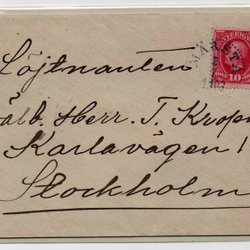 SVERIGE
10
Löjtnanten
Välb. Herr. T. Krop
Karlavägen 1
Stockholm